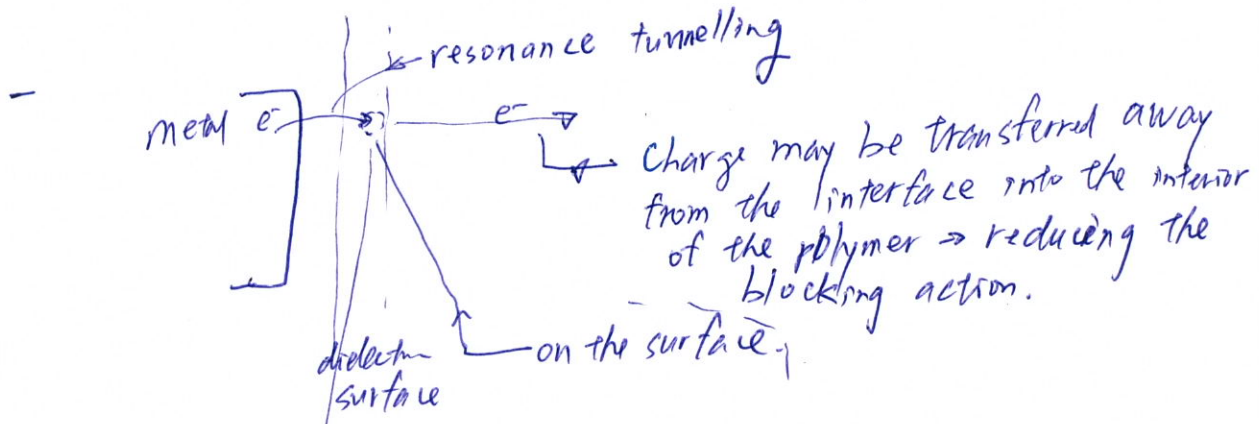 resonance tunnelling
metal e-
e-
Charge may be transferred away
from the interface into the interior
of the polymer → reducing the
blocking action.
on the surface.
surface